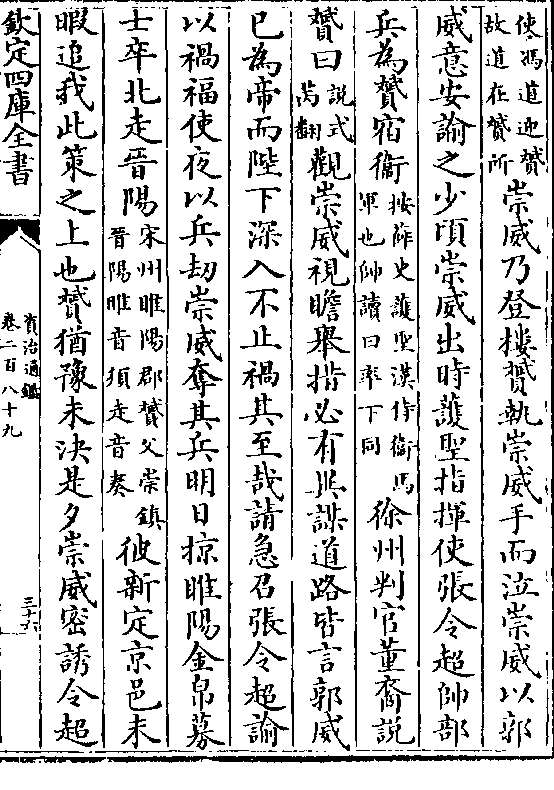 使馮道迎贇
故道在贇所
崇威乃登樓贇執崇威手而泣崇威以郭
威意安諭之少頃崇威出時護聖指揮使張令超帥部
兵為贇宿衛
按薛史護聖漢侍衛馬
軍也帥讀曰率下同
徐州判官董裔說
贇曰
說式
芮翻
觀崇威視瞻舉措必有異謀道路皆言郭威
已為帝而陛下深入不止禍其至哉請急召張令超諭
以禍福使夜以兵劫崇威奪其兵明日掠睢陽金帛募
士卒北走晉陽
宋州睢陽郡贇父崇鎮
晉陽睢音須走音奏
彼新定京邑未
暇追我此策之上也贇猶豫未決是夕崇威密誘令超
欽定四庫全書
資治通鑑
卷二百八十九
三十六